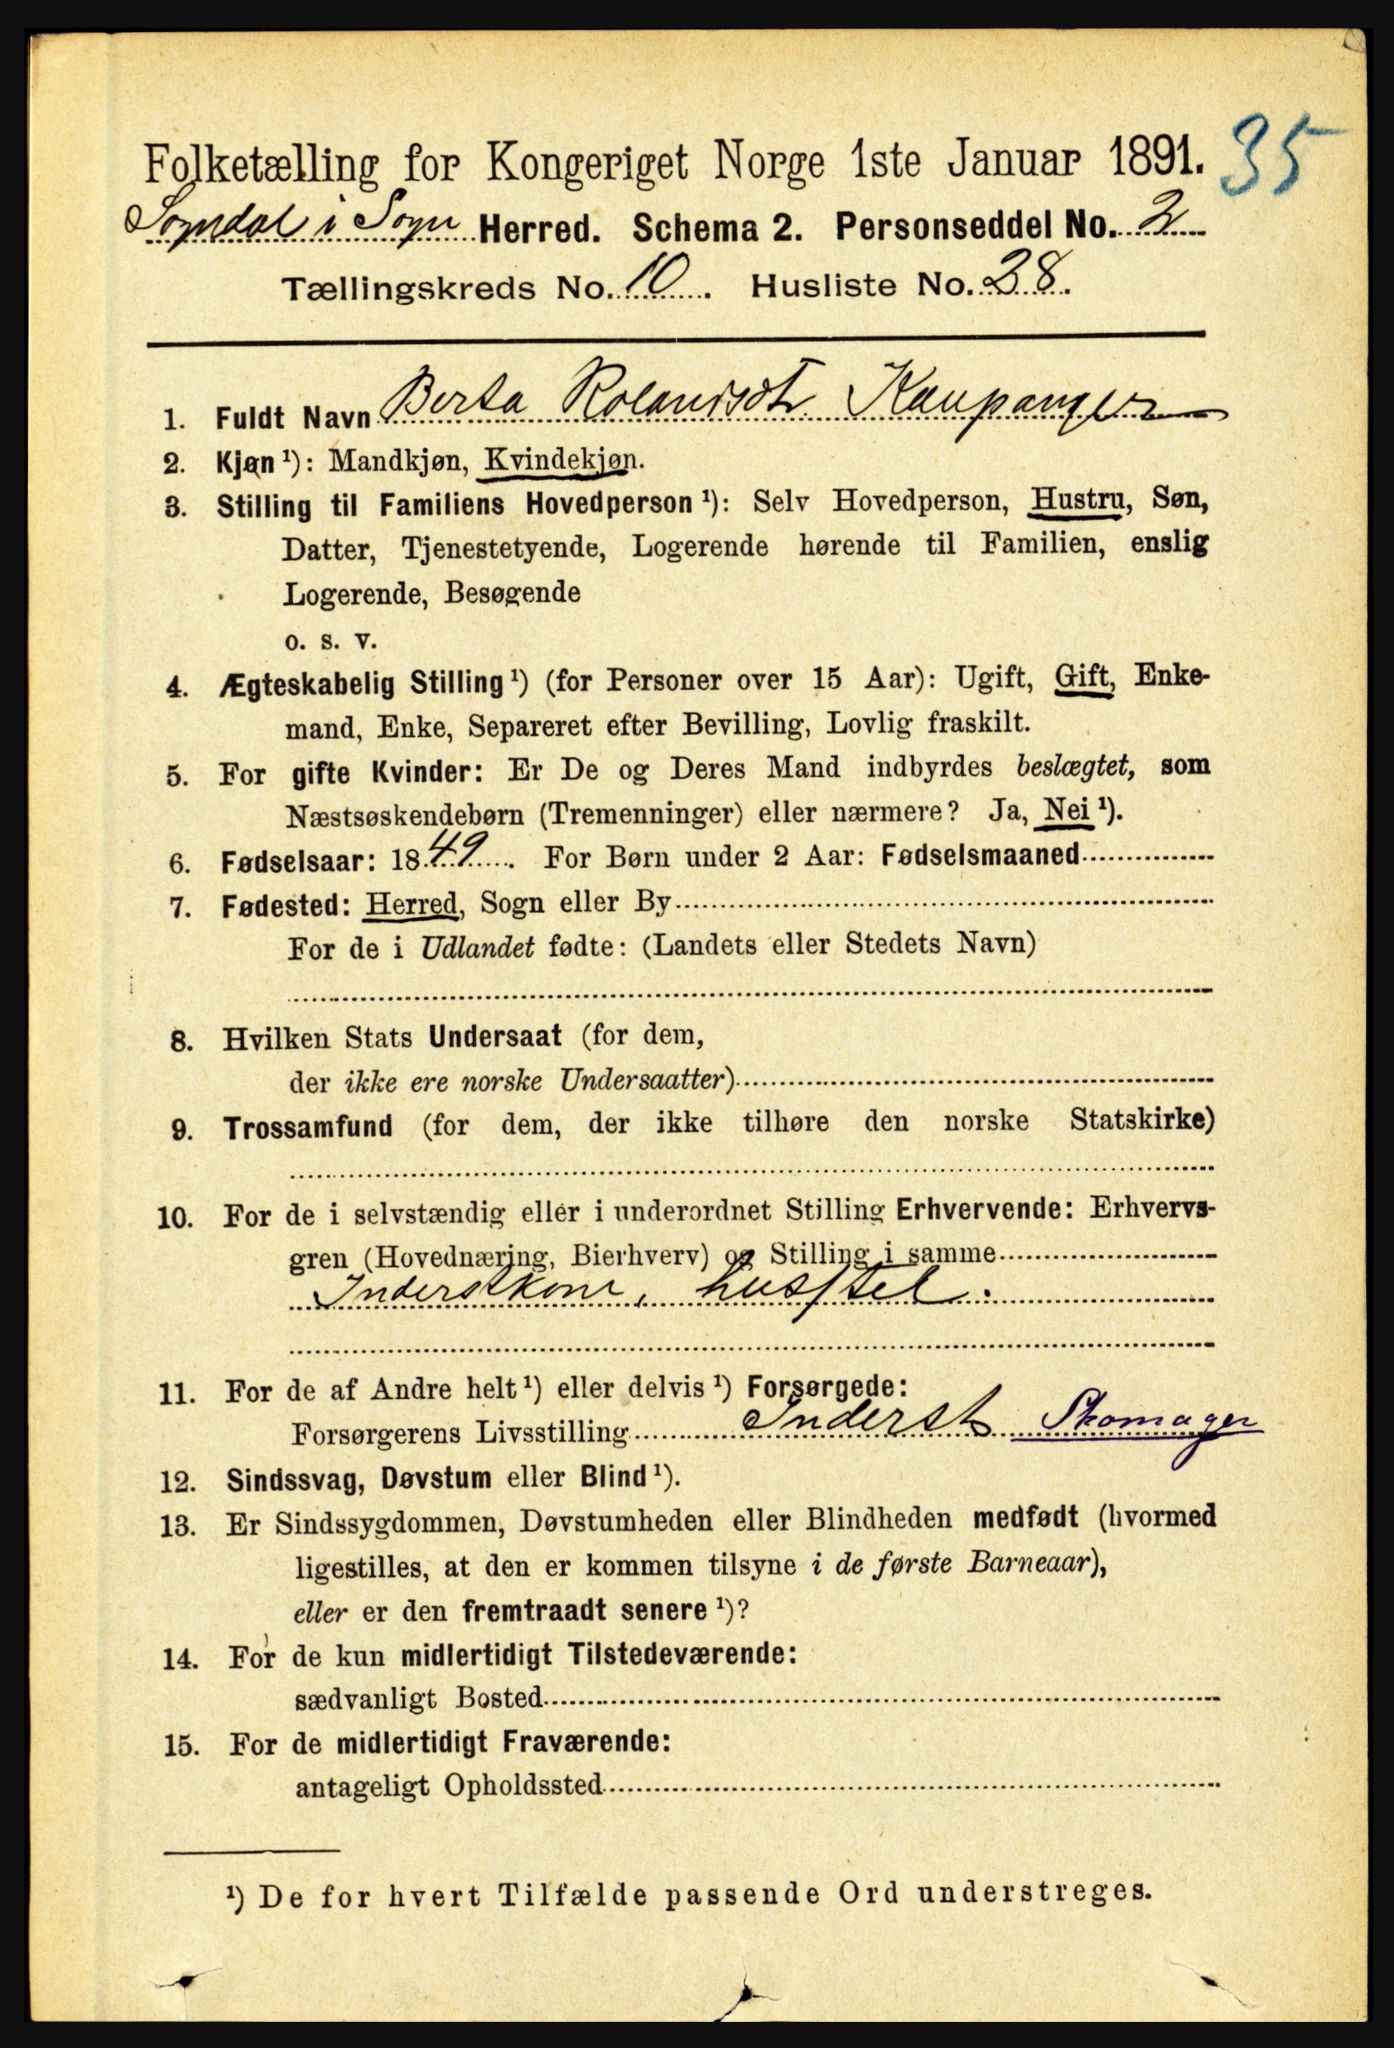 35
Folketælling for Kongeriget Norge 1ste Januar 1891.
Sogndal i Sogn Herred. Schema 2. Personseddel No. 2
Tællingskreds No. 10. Husliste No. 28.
1. Fuldt Navn Berta Rolandsdtr Kaupanger
2. Kjøn ¹): Mandkjøn, Kvindekjøn.
3. Stilling til Familiens Hovedperson ¹): Selv Hovedperson, Hustru, Søn,
Datter, Tjenestetyende, Logerende hørende til Familien, enslig
Logerende, Besøgende
o. s. v.
4. Ægteskabelig Stilling ¹) (for Personer over 15 Aar): Ugift, Gift, Enke-
mand, Enke, Separeret efter Bevilling, Lovlig fraskilt.
5. For gifte Kvinder: Er De og Deres Mand indbyrdes beslægtet, som
Næstsøskendebørn (Tremenninger) eller nærmere? Ja, Nei ¹).
6. Fødselsaar: 1849. For Børn under 2 Aar: Fødselsmaaned
7. Fødested: Herred, Sogn eller By
For de i Udlandet fødte: (Landets eller Stedets Navn)
8. Hvilken Stats Undersaat (for dem,
der ikke ere norske Undersaatter)
9. Trossamfund (for dem, der ikke tilhøre den norske Statskirke)
10. For de i selvstændig eller i underordnet Stilling Erhvervende: Erhvervs-
gren (Hovednæring, Bierhverv) og Stilling i samme
Inderstkone, husstel.
11. For de af Andre helt ¹) eller delvis ¹) Forsørgede:
Forsørgerens Livsstilling Inderst Skomager
12. Sindssvag, Døvstum eller Blind ¹).
13. Er Sindssygdommen, Døvstumheden eller Blindheden medfødt (hvormed
ligestilles, at den er kommen tilsyne i de første Barneaar),
eller er den fremtraadt senere ¹)?
14. For de kun midlertidigt Tilstedeværende:
sædvanligt Bosted
15. For de midlertidigt Fraværende:
antageligt Opholdssted
¹) De for hvert Tilfælde passende Ord understreges.